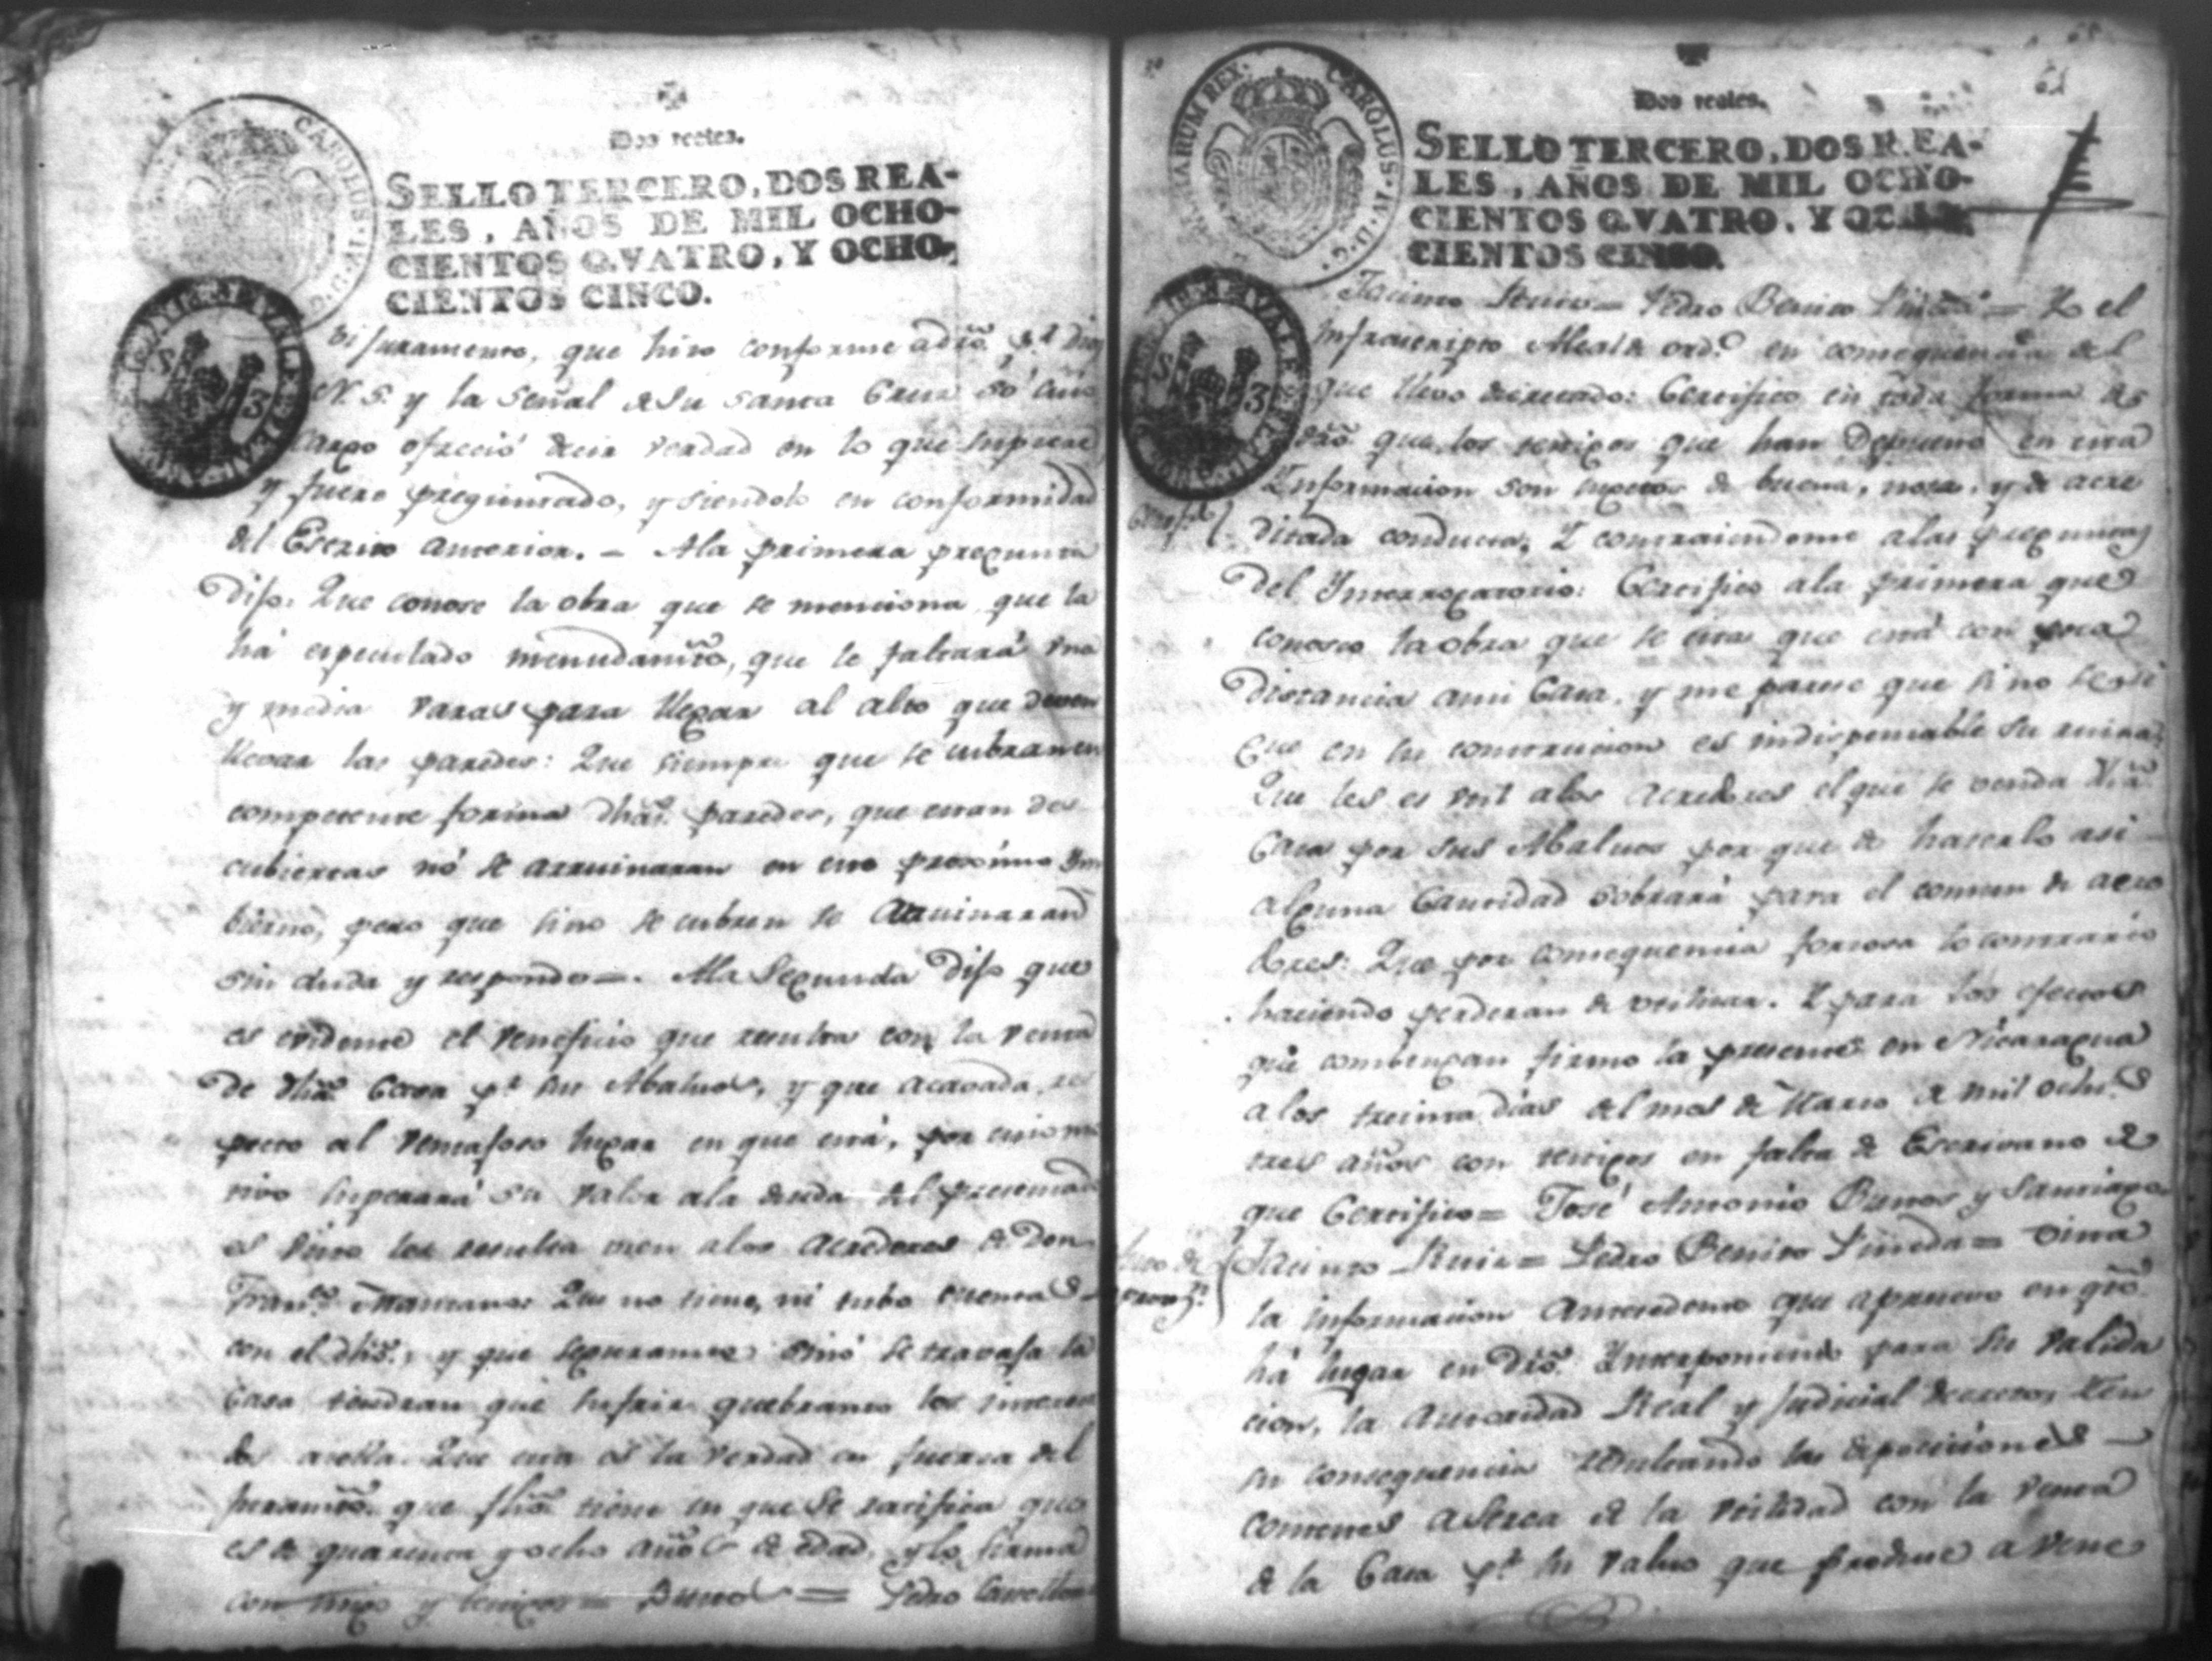 Dos reales.
SELLO TERCERO, DOS REA-
LES, AÑOS DE MIL OCHO-
CIENTOS QVATRO, Y OCHO-
CIENTOS CINCO.
CAROLUS·IV·D·G·
S 3
juramento, que hizo conforme a dro. pr. Dios
N. S. y la señal de su santa Cruz só cuio
cargo ofreció decir verdad en lo que supiere
y fuere preguntado, y siendolo en conformidad
del Escrito anterior. = A la primera pregunta
Dijo: Que conose la obra que se menciona, que la
há especulado menudamte., que le faltará vna
y media varas para llegar al alto que deven
llevar las paredes: Que siempre que se cubran en
competente forma dhas. paredes, que estan des
cubiertas nó se arruinaran en este procsimo Ym
bierno, pero que sino se cubren se arruinaran
sin duda y responde=. A la Segunda Dijo que
es evidente el veneficio que resulta con la venta
de dha. Casa pr. su Abaluo, y que acavada, res
pecto al ventajoso lugar en que está, por cuio mo
tivo superará su valor a la deuda del presentado
es visto les resulta vien a los Acredores de Don
Franco. Manzano: Que no tiene, ni tubo cuentas
con el dho., y que seguramte. sinó se travaja la
Casa tendran que sufrir quebranto los interesa
dos a ella. Que esta es la verdad en fuerza del
juramto. que fho. tiene en que se ratifica que
es de quarenta y ocho años de edad, y lo firma
con migo y testigos = Bustos = Pedro Castellon
Dos reales.
61
SELLO TERCERO, DOS REA-
LES, AÑOS DE MIL OCHO-
CIENTOS QVATRO, Y OCHO-
CIENTOS CINCO.
CAROLUS·IV·D·G· ARUM REX·
S 3
Jacinto Ruiz = Pedro Benito Pineda = Yo el
Infrascripto Alcalde ordo. en consequencia del
que llevo decretado: Certifico en toda forma de
dro. que los testigos que han Depuesto en esta
Informacion son sugetos de buena, nota, y de acre
ditada conducta, Y contraiendome a las preguntas
del Ynterrogatorio: Certifico a la primera que
conosco la obra que se cita que está con poca
distancia a mi Casa, y me parese que si no se si
gue en su construcion es indispensable su ruina:
Que les es vtil a los Acredores el que se venda dha.
Casa por sus Abaluos por que de hacerlo asi
alguna Cantidad sobrará para el comun de acre
dores: Que por consequencia forzosa lo contrario
haciendo perderan de vtilizar. Y para los efectos
que combengan firmo la presente en Nicaragua
a los treinta dias del mes de Marzo de mil ochos.
tres años con testigos en falta de Escrivano de
que Certifico = José Antonio Bustos y Santiago
Jacinto Ruiz = Pedro Benito Pineda = Vista
la informacion Antesedente que apruevo en qto.
há lugar en dro. Ynterponiendo para su valida
cion, la Autoridad Real y Judicial decreto, Y en
su consequencia resultando las deposiciones
contestes aserca de la vtilidad con la venta
de la Casa pr. su valuo que produce a vene